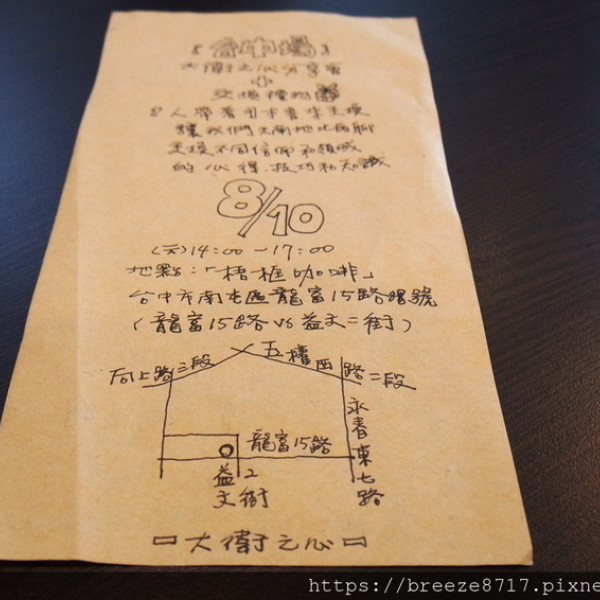 【台中場】
大衛之心分享會
+
交換禮物
8人帶著8本書來交換
讓我們天南地北的聊
交換不同信仰和領域
的心得、技巧和知識
8/10
(六)14:00-17:00
地點:「梧框咖啡」
台中市南屯區龍富15路 號
(龍富15路 vs 益文二街)
五權西路二段
向上路三段
永春東七路
龍富15路
益文2街
大衛之心
https://breeze8717.pixne